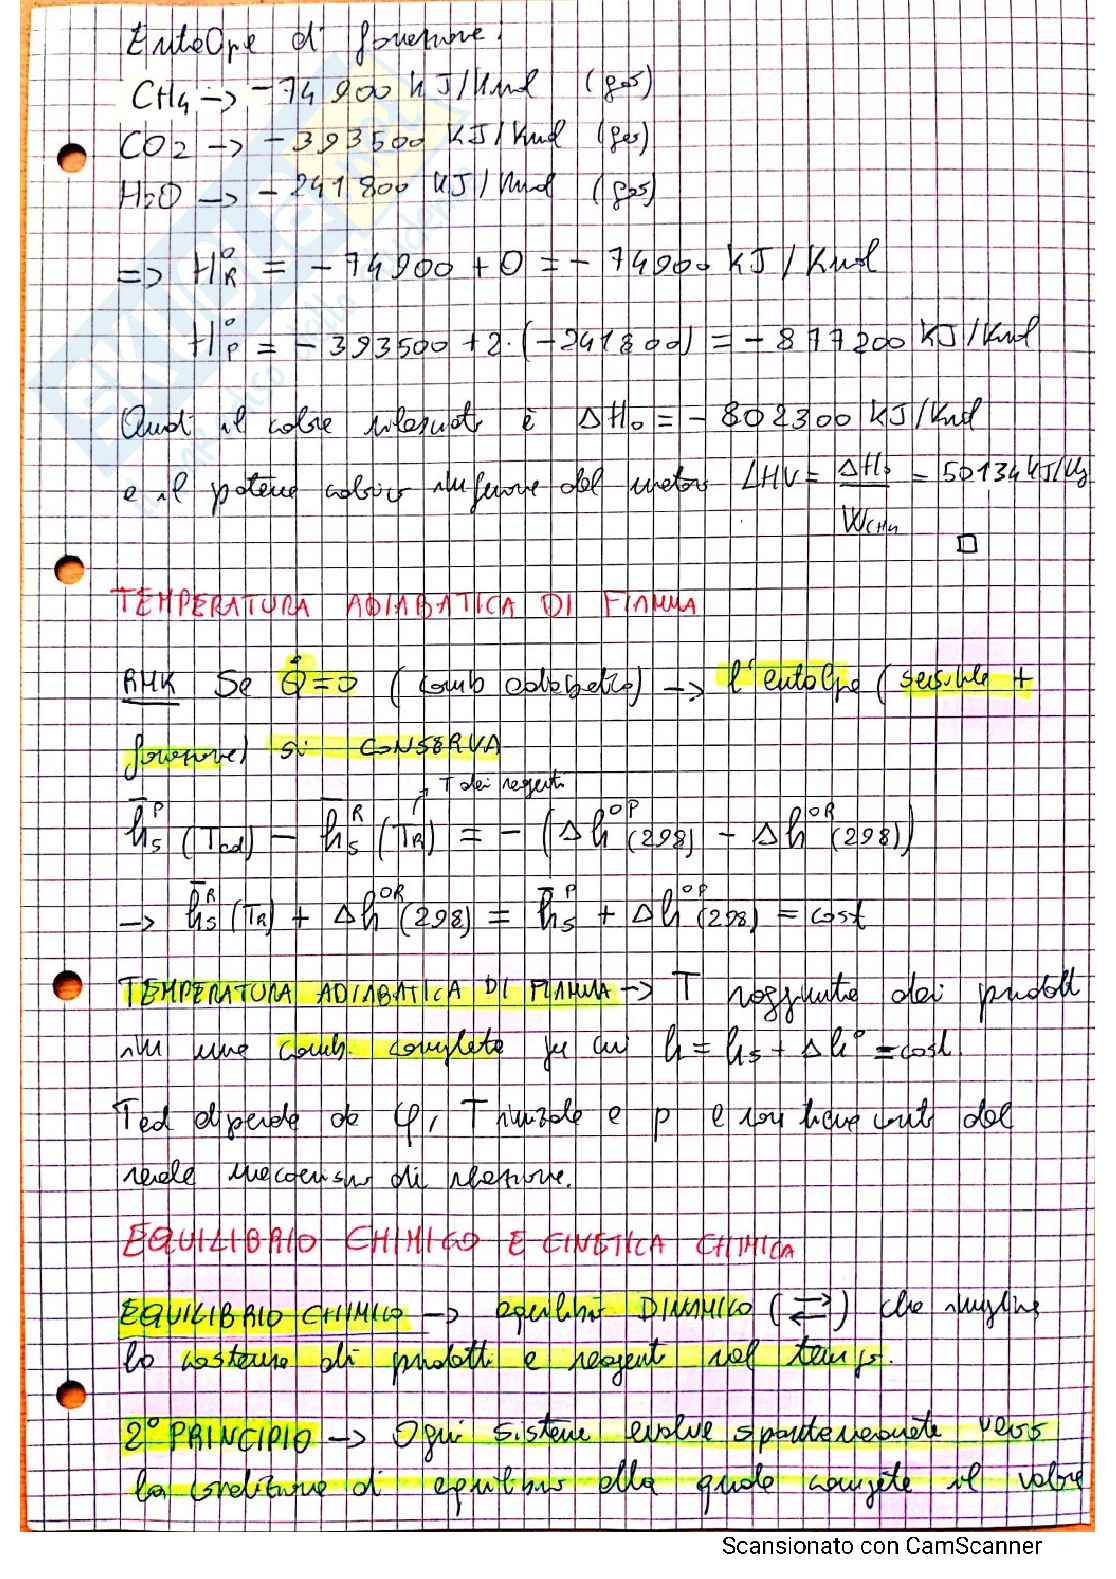 Entalpie di formazione:
CH4 → -74 900 KJ/Kmol (gas)
CO2 → -393500 KJ/Kmol (gas)
H2O → -241 800 KJ/Kmol (gas)
=> H°R = -74900 + 0 = -74900 KJ/Kmol
H°P = -393500 + 2·(-241800) = -877200 KJ/Kmol
Quindi il calore rilasciato è ΔH0 = -802300 KJ/Kmol
e il potere calorico inferiore del metano LHV = ΔH0 / WCH4 = 50134 KJ/Kg
TEMPERATURA ADIABATICA DI FIAMMA
RMK Se Q̇=0 (comb adiabatica) → l'entalpia (sensibile +
formazione) si CONSERVA
T dei reagenti
h̄sᴾ (Tad) - h̄sᴿ (TR) = - (Δh°ᴾ(298) - Δh°ᴿ(298))
→ h̄sᴿ(TR) + Δh°ᴿ(298) = h̄sᴾ + Δh°ᴾ(298) = cost
TEMPERATURA ADIABATICA DI FIAMMA → T raggiunta dai prodotti
in una comb. completa per cui h = hs + Δh° = cost.
Tad dipende da φ, T iniziale e p e non tiene conto del
reale meccanismo di reazione.
EQUILIBRIO CHIMICO E CINETICA CHIMICA
EQUILIBRIO CHIMICO → equilibrio DINAMICO (⇄) che
la costanza di prodotti e reagenti nel tempo.
2° PRINCIPIO → Ogni sistema evolve spontaneamente verso
la condizione di equilibrio alla quale compete il valore
Scansionato con CamScanner